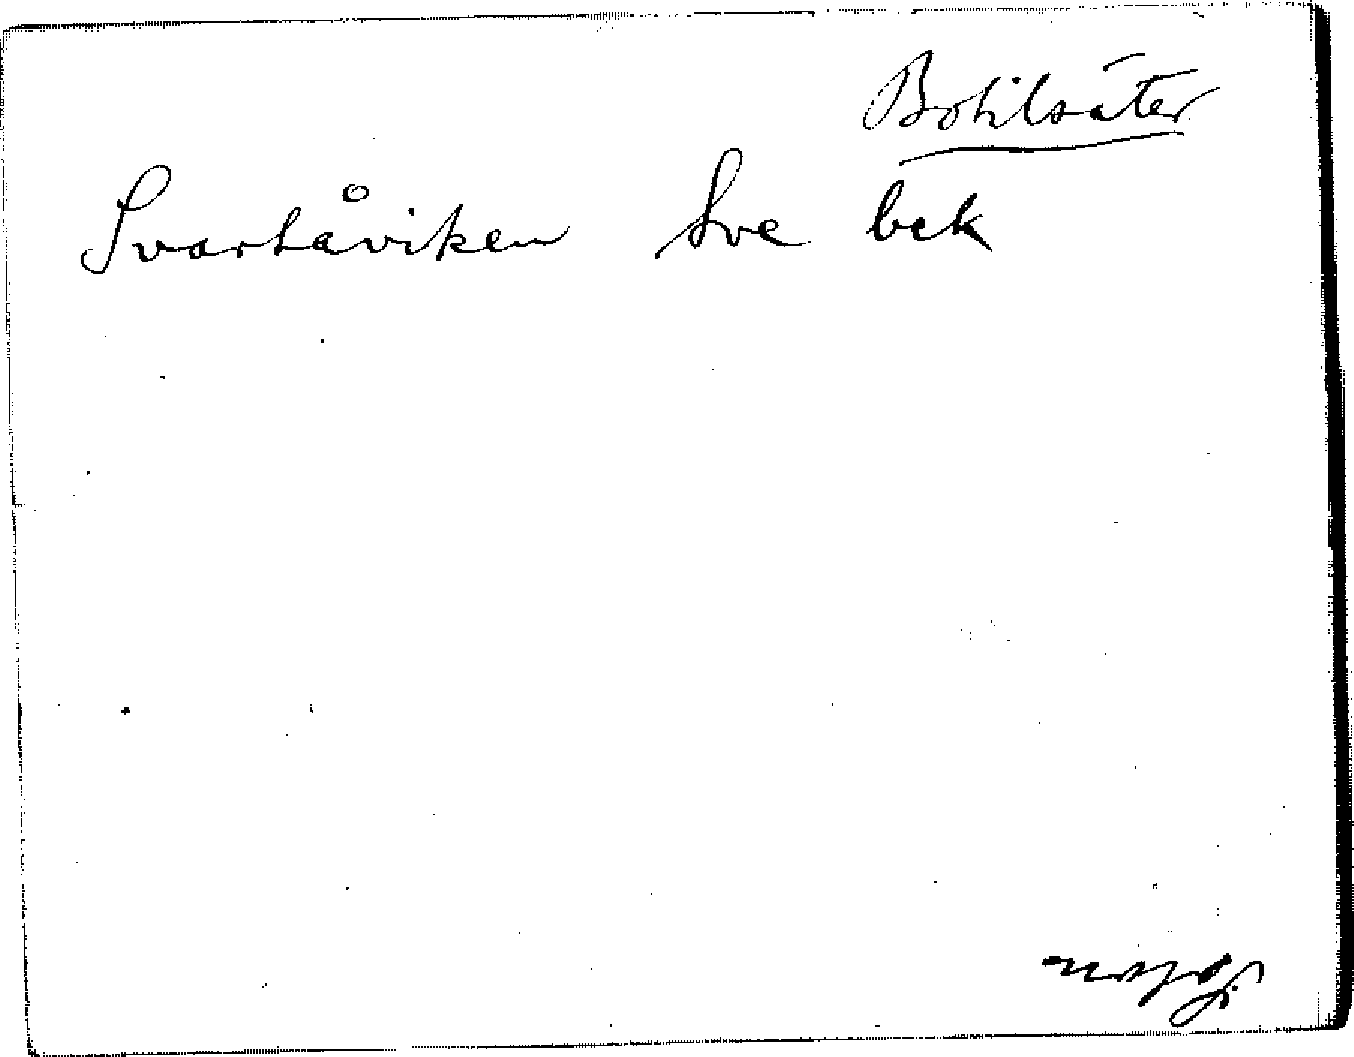 Botilsäter
Svartåviken Sve bek